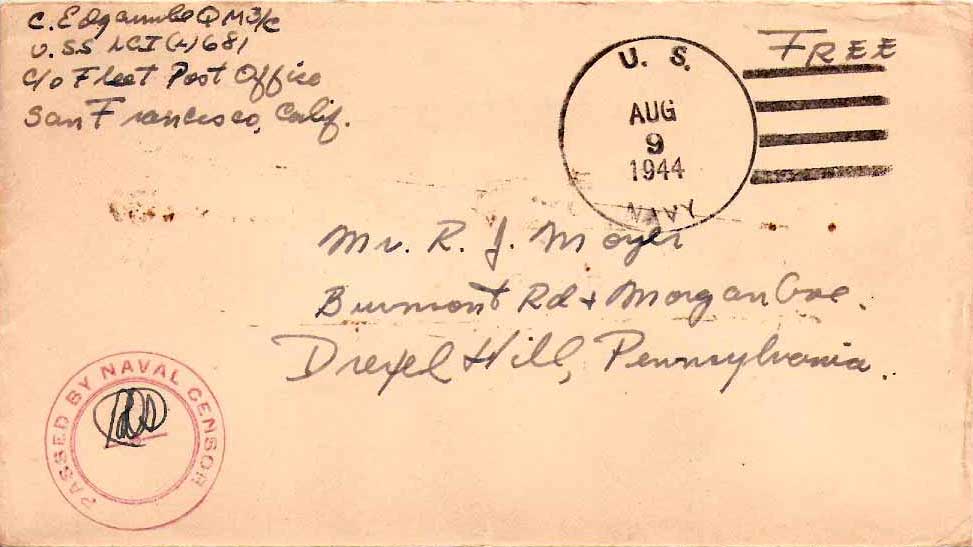 C. Edgcumbe QM3/c
U.S.S. LCI(L) 681
c/o Fleet Post Office
San Francisco, Calif.
FREE
U. S.
AUG
9
1944
NAVY
Mr. R. J. Moyer
Burmont Rd + Morgan Ave.
Drexel Hill, Pennsylvania.
PASSED BY NAVAL CENSOR